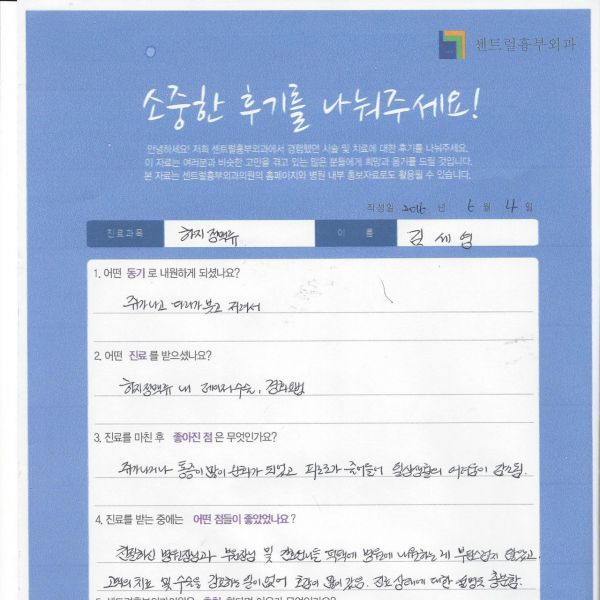 센트럴흉부외과
소중한 후기를 나눠주세요!
안녕하세요! 저희 센트럴흉부외과에서 경험했던 시술 및 치료에 대한 후기를 나눠주세요.
이 자료는 여러분과 비슷한 고민을 겪고 있는 많은 분들에게 희망과 용기를 드릴 것입니다.
본 자료는 센트럴흉부외과의원의 홈페이지와 병원 내부 홍보자료로도 활용될 수 있습니다.
작성일 2016 년 5 월 4 일
진료과목 하지정맥류 이 름 김세영
1. 어떤 동기로 내원하게 되셨나요?
쥐가나고 다리가붓고 저려서
2. 어떤 진료를 받으셨나요?
하지정맥류 내 레이저수술, 경화요법
3. 진료를 마친 후 좋아진 점은 무엇인가요?
쥐가나거나 통증이 많이 완화가 되었고 피로도가 줄어들어 일상생활의 어려움이 감소됨.
4. 진료를 받는 중에는 어떤 점들이 좋았었나요?
친절하신 병원장님과 부원장님 및 간호사님들 덕택에 병원에 내원하는 데 부담스럽지 않았고.
고가의 치료 및 수술을 강요하는 일이 없어 호감이 많이 갔음. 진료 상태에 대한 설명도 충분함.